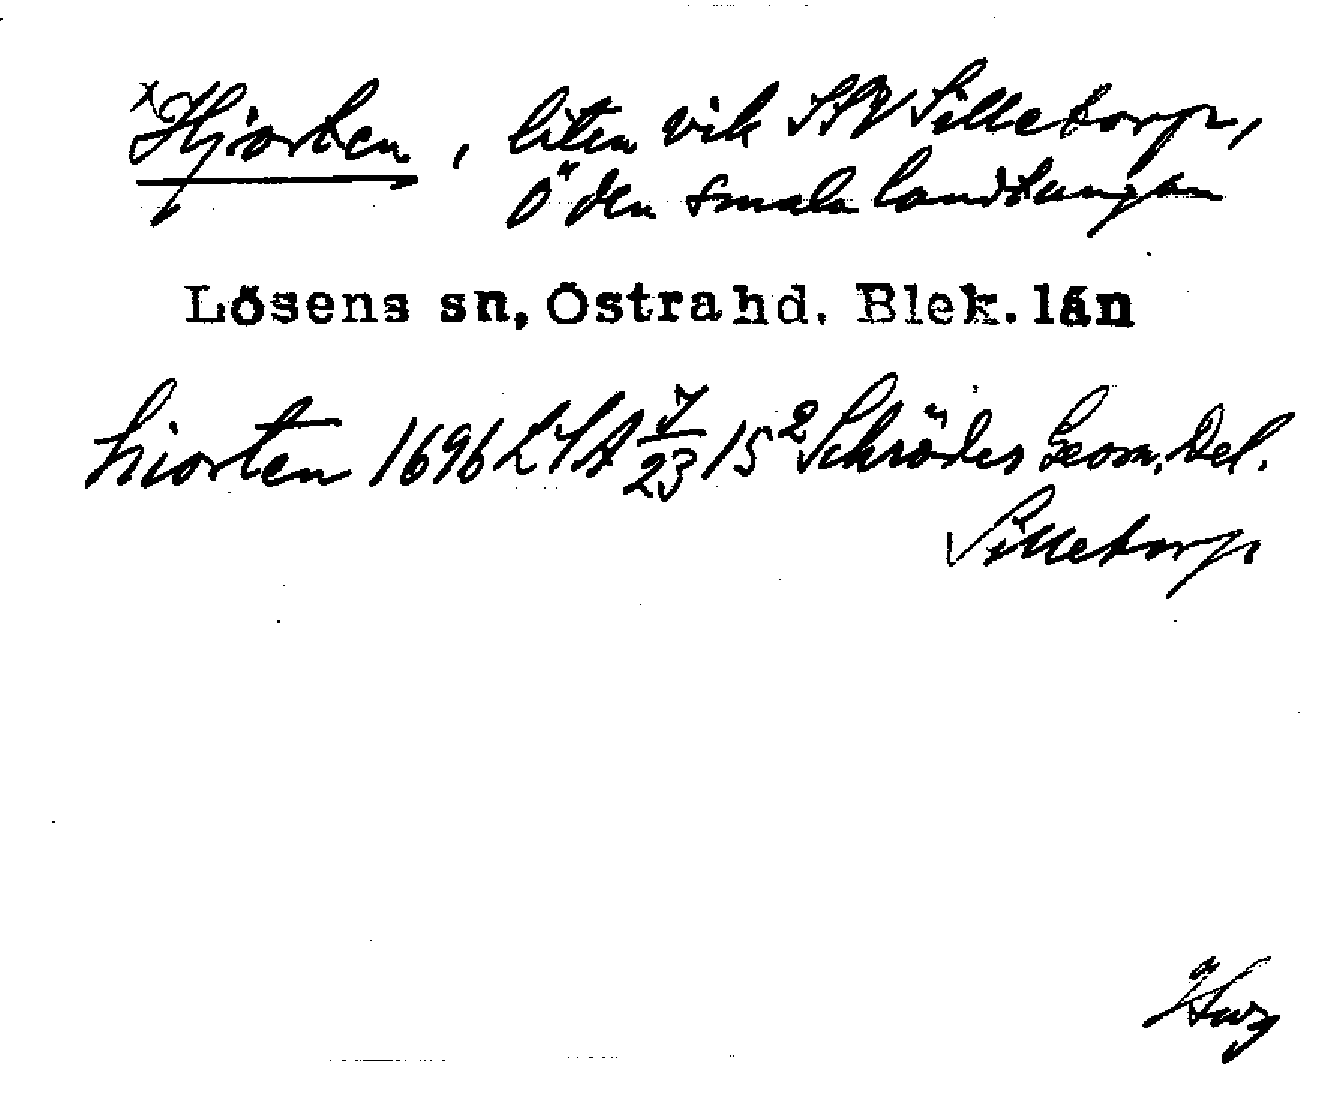 x Hjorten, liten vik SV Silletorp,
Ö den smala landtungan
Lösens sn, Östra hd. Blek. län
hiorten 1696 LSA 7/23 15² Schröders Geom. Del.
Silletorp